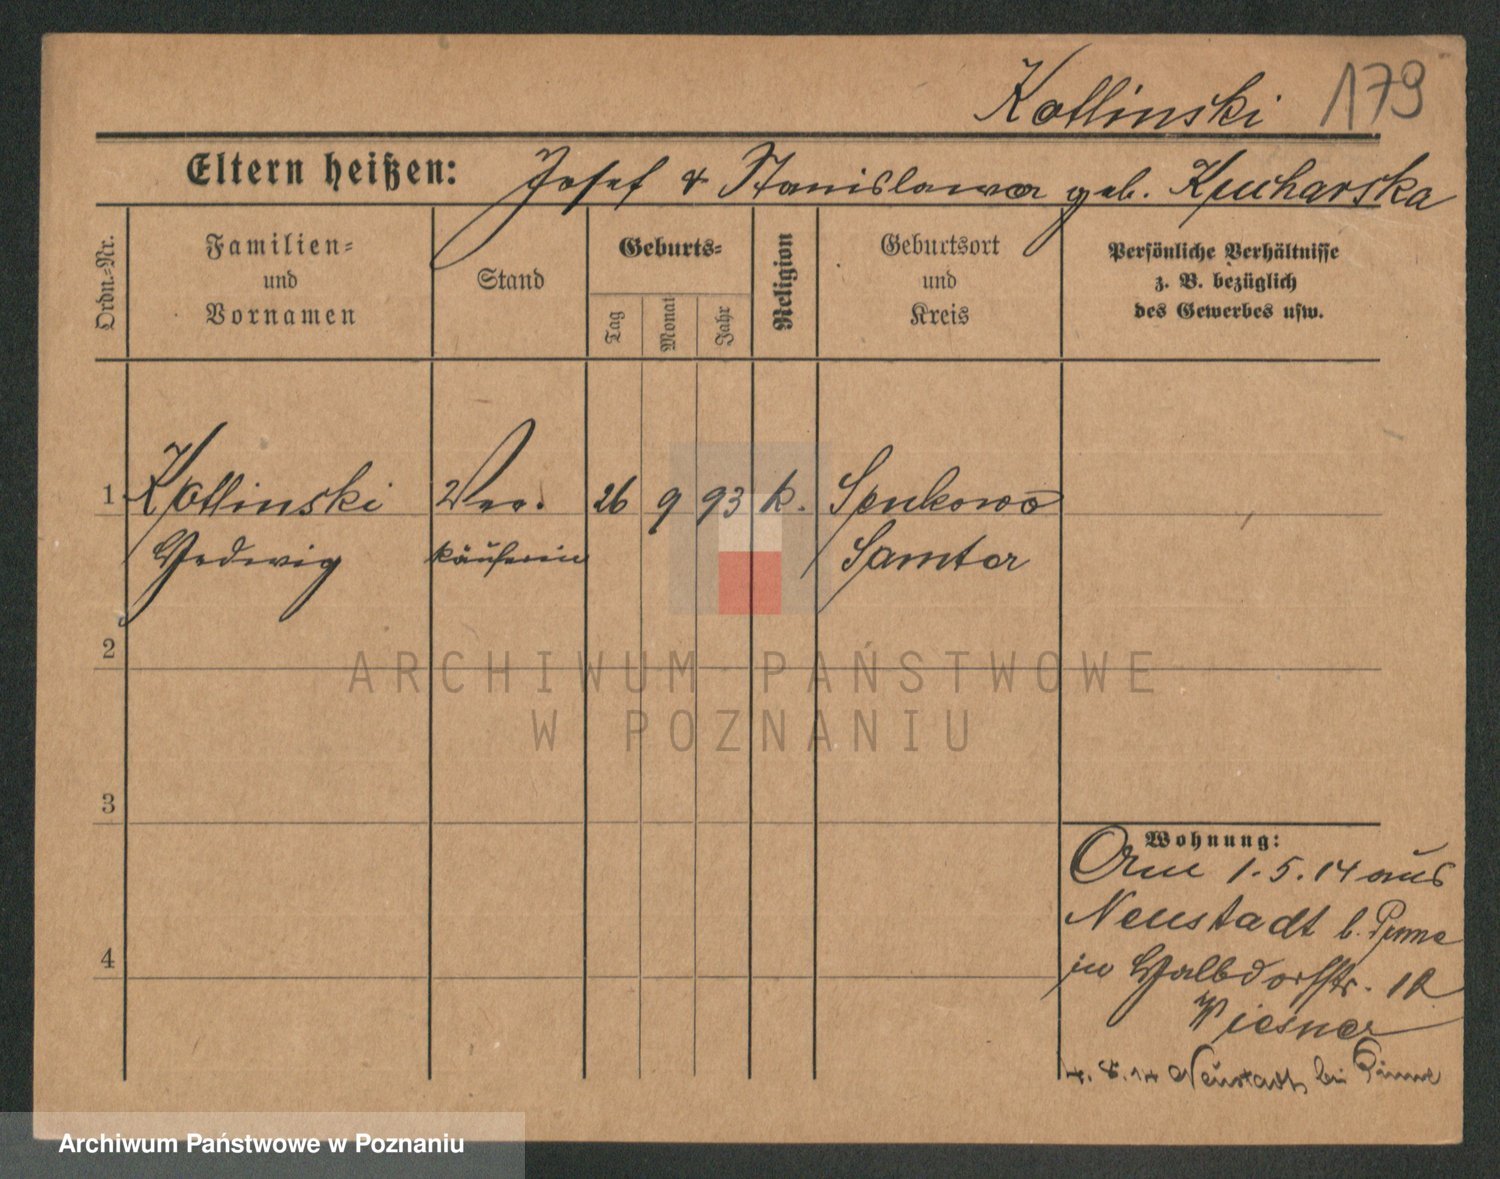 Kotlinski 179
Eltern heißen: Josef & Stanislawa geb. Kucharska
Ordn.-Nr.
Familien-
und
Vornamen
Stand
Geburts-
Tag
Monat
Jahr
Religion
Geburtsort
und
Kreis
Persönliche Verhältnisse
z. B. bezüglich
des Gewerbes usw.
1 Kotlinski Ver- 26 9 93 k. Senkowo
Hedwig käuferin Samter
2
3
4
Wohnung:
Am 1.5.14 aus
Neustadt b. Pinne
in Halbdorfstr.
Wiesner
Neustadt bei Pinne
ARCHIWUM PAŃSTWOWE
W POZNANIU
Archiwum Państwowe w Poznaniu